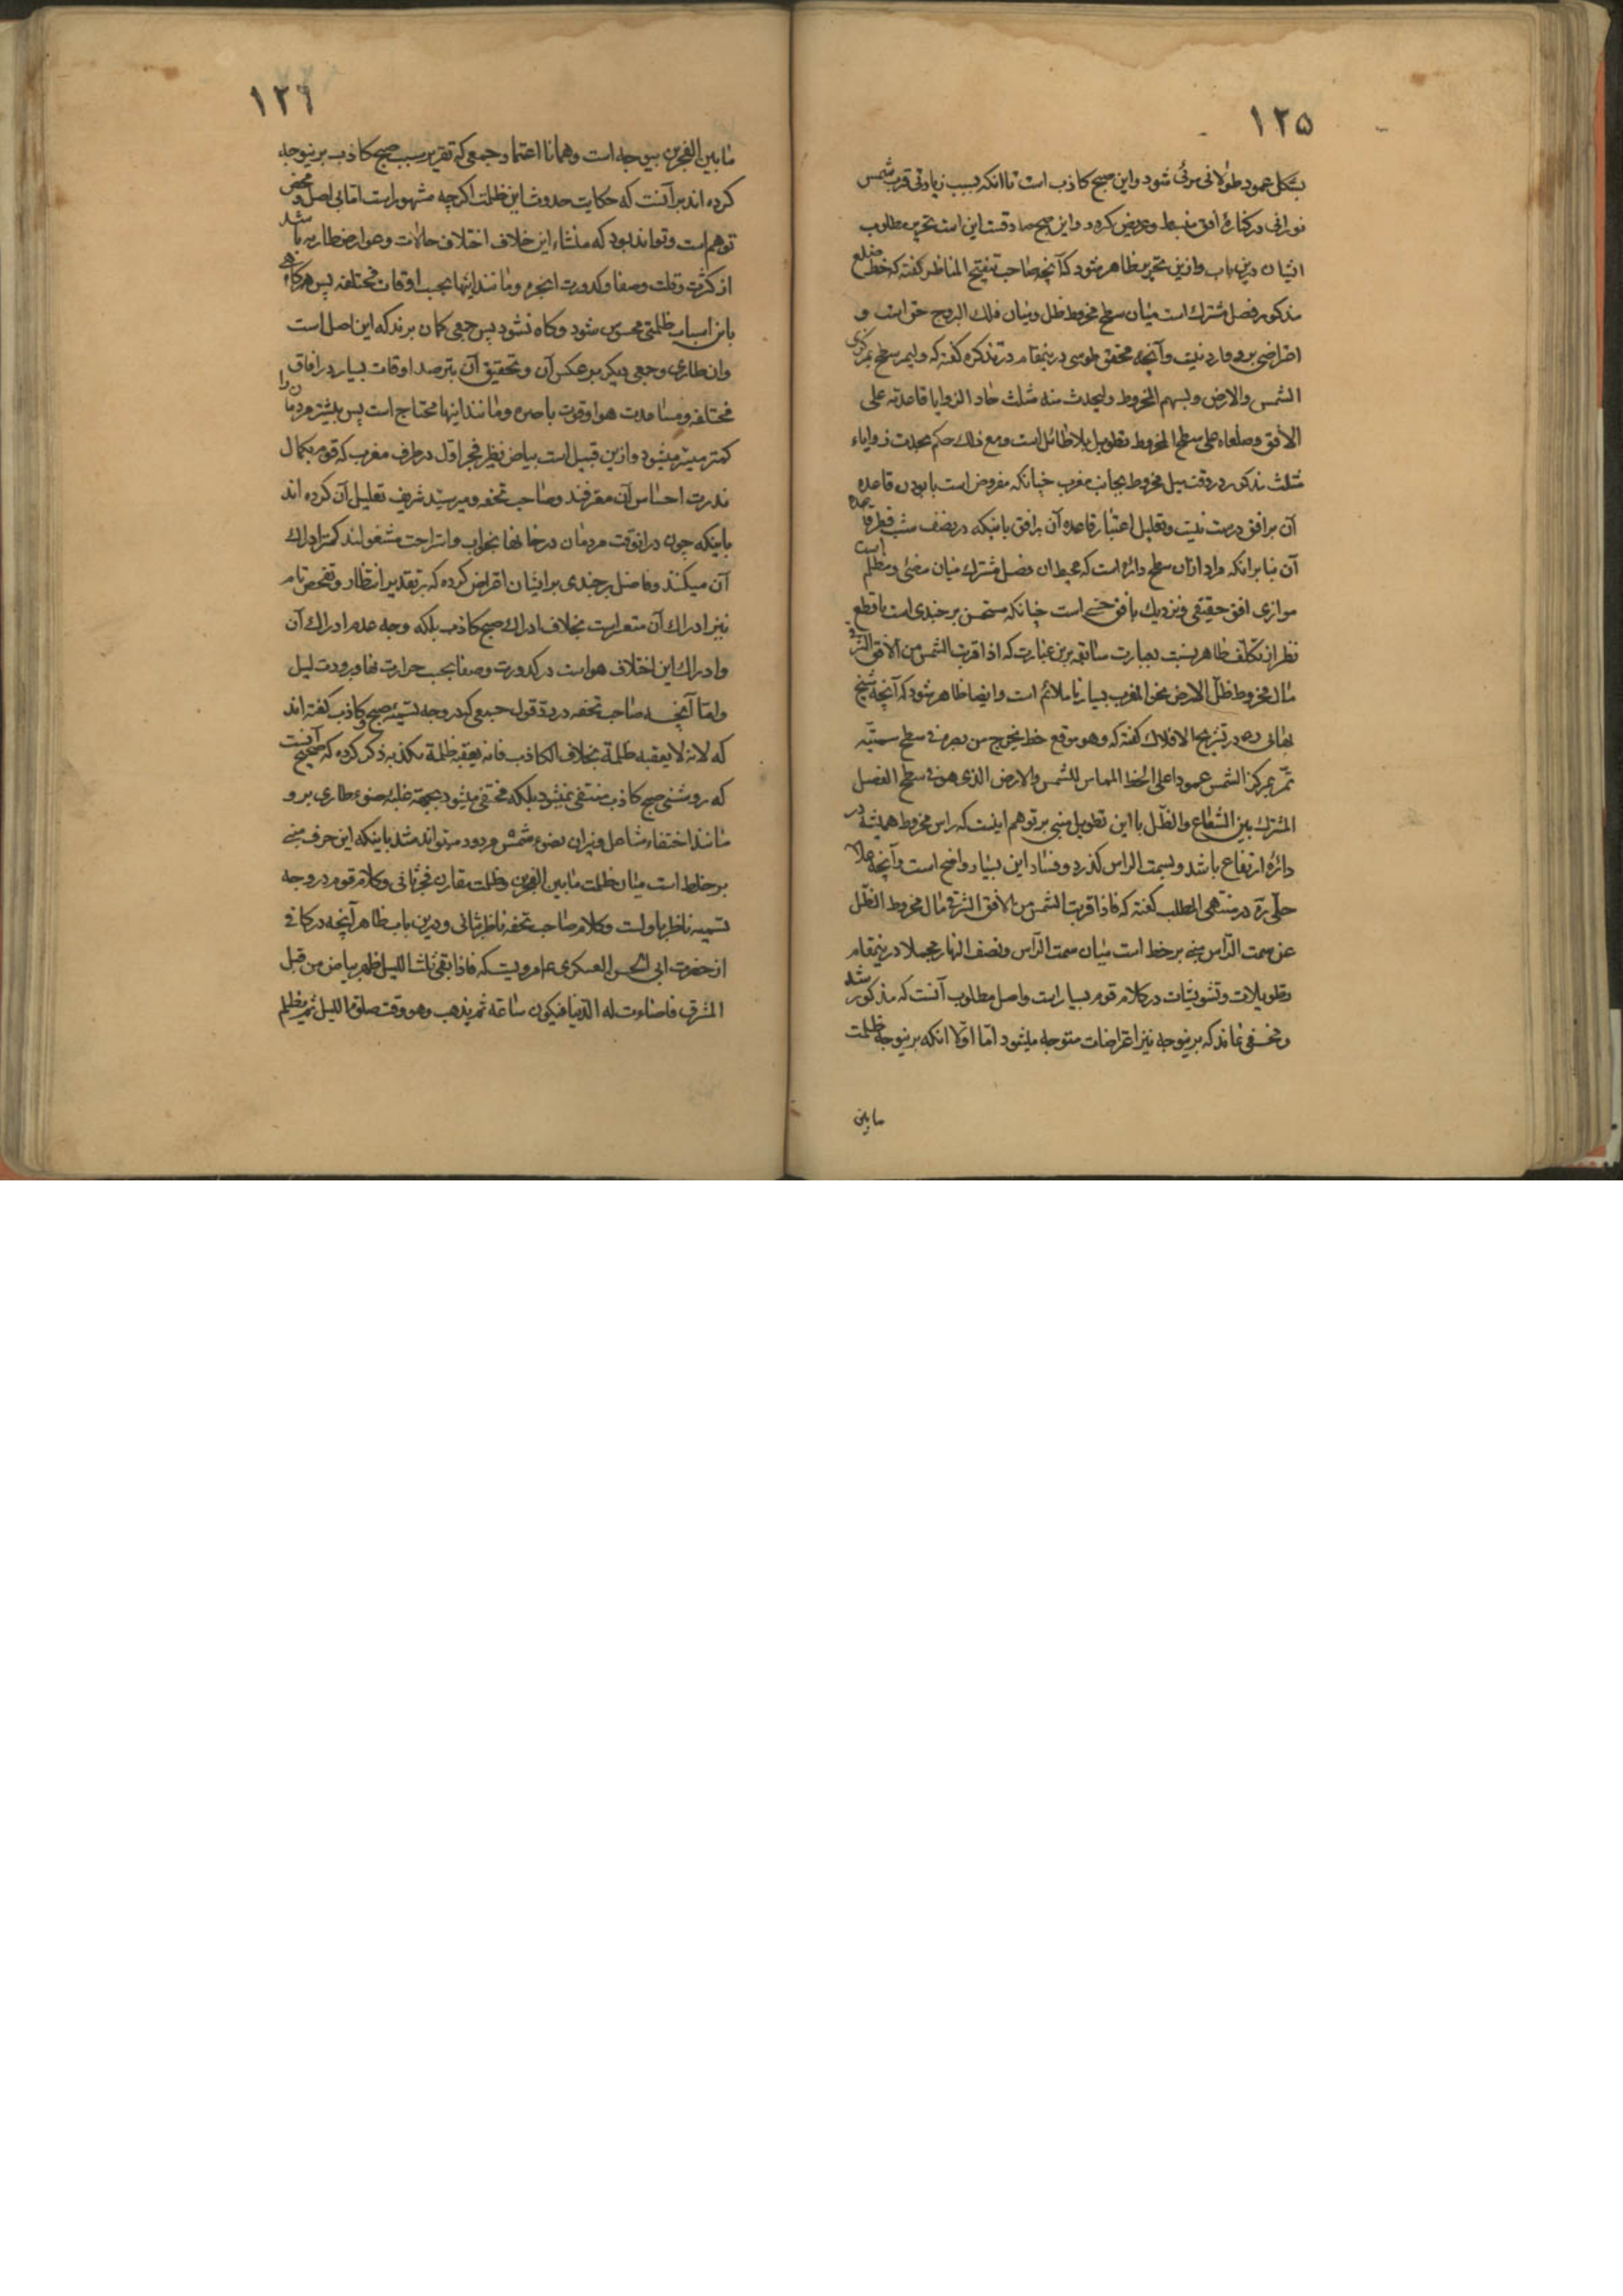 ١٢٥
بشکل عمود طولانی مرئی شود و این صبح کاذب است تا آنکه بسبب زیادتی قرب شمس
نورانی در کنارهٔ افق منبسط و عریض کردد و این صبح صادقست این است تحریر مطلوب
ایشان درین باب و ازین تحریر ظاهر میشود که آنچه صاحب تنقیح المناظر کفته که خط مضلع
مذکور فصل مشترک است میان سطح مخروط ظل و میان فلک البروج حق است و
اعتراضی برو وارد نیست و آنچه محقق طوسی درینمقام در تذکره کفته که و لیمر سطح بمرکزی
الشمس والارض و بسهم المخروط و لیحدث منه مثلث حاد الزوایا قاعدته علی
الافق وضلعاه علی سطح المخروط تطویل بلا طائل است و مع ذلک حکم بحدت زوایاء
مثلث مذکور در وقت میل مخروط بجانب مغرب چنانکه مفروض است با بودن قاعده
آن بر افق درست نیست و تعلیل اعتبار قاعده آن بر افق باینکه در نصف شب قطر قاعده
آن بنابر انکه مراد ازان سطح دائره است که محیط ان فصل مشترک میان مضئی و مظلم است
موازی افق حقیقی و نزدیک بافق حسی است چنانکه مستحسن برجندی است با قطع
نظر از تکلف ظاهر بنسبت بعبارت سابقه برین عبارت که اذا قربت الشمس من الافق الشرقی
مال مخروط ظل الارض نحو المغرب بسیار ناملائم است و ایضا ظاهر میشود که آنچه شیخ
بهائی ره در تشریح الافلاک کفته که و هو موقع خط یخرج من بصره فی سطح سمتیه
تمر بمرکز الشمس عمودا علی الخط المماس للشمس والارض الذی هو فی سطح الفصل
المشترک بین الشعاع والظل با این تطویل مبنی بر توهم اینست که راس مخروط همیشه در
دائرهٔ ارتفاع باشد و بسمت الراس کذرد و فساد این بسیار واضح است و آنچه علامه
حلی ره در منتهی المطلب کفته که فاذا قربت الشمس من الافق الشرقی مال مخروط الظل
عن سمت الراس مبنی بر خط است میان سمت الراس و نصف النهار مجملا درینمقام
تطویلات و تشویشات در کلام قوم بسیار است و اصل مطلوب آنست که مذکور شد
و مخفی نماند که برینوجه نیز اعتراضات متوجه میشود اما اولا انکه برینوجه ظلمت
مابین
١٢٦
مابین الفجرین بیوجه است و همانا اعتماد جمعی که تقریر سبب صبح کاذب برینوجه
کرده اند بر آنست که حکایت حدوث این ظلمت اکرچه مشهور است اما بی اصل و محض
توهم است و تواند بود که منشاء این خلاف اختلاف حالات و عوارض طاریه باشد
از کثرت و قلت و صفا و کدورت ابخره و مانند اینها بحسب اوقات مختلفه پس هرکاه کاهی
باین اسباب ظلمتی محسوس شود و کاه نشود پس جمعی کمان برند که این اصل است
و ان طاری و جمعی دیکر بر عکس آن و تحقیق آن بترصد اوقات بسیار در افاق
مختلفه و مساعدت هوا و قوت باصره و مانند اینها محتاج است پس بیشتر مردمان را
کمتر میسر میشود و ازین قبیل است بیاض نظیر فجر اول در طرف مغرب که قوم بکمال
ندرت احساس آن معترفند و صاحب تحفه و میر سید شریف تعلیل آن کرده اند
باینکه چون درانوقت مردمان در خانها بخواب و استراحت مشغولند کمتر ادراک
آن میکنند و فاضل برجندی بر ایشان اعتراض کرده که بر تقدیر انتظار و تفحص تام
نیز ادراک آن متعسر است بخلاف ادراک صبح کاذب بلکه وجه عدم ادراک آن
و ادراک این اختلاف هواست در کدورت و صفا بحسب حرارت نهار و برودت لیل
و اما آنچه صاحب تحفه در رد قول جمعی که در وجه تسمیه صبح کاذب کفته اند
که لانه لا یعقبه ظلمة بخلاف الکاذب فانه یعقبه ظلمة تکذبه ذکر کرده که صحیح آنست
که روشنی صبح کاذب منتفی نمیشود بلکه مختفی میشود بجهة غلبه ضوء طاری برو
مانند اختفاء مشاعل و نیران بضوء شمس مردود میتواند شد باینکه این حرف مبنی
بر خلط است میان ظلمت مابین الفجرین و ظلمت مقارن فجر ثانی و کلام قوم در وجه
تسمیه ناظر باولست و کلام صاحب تحفه ناظر بثانی و درین باب ظاهر آنچه در کافی
از حضرت ابی الحسن العسکری ع مرویست که فاذا بقی ثلث اللیل ظهر بیاض من قبل
المشرق فاضاءت له الدنیا فیکون ساعة ثم یذهب و هو وقت صلوة اللیل ثم یظلم